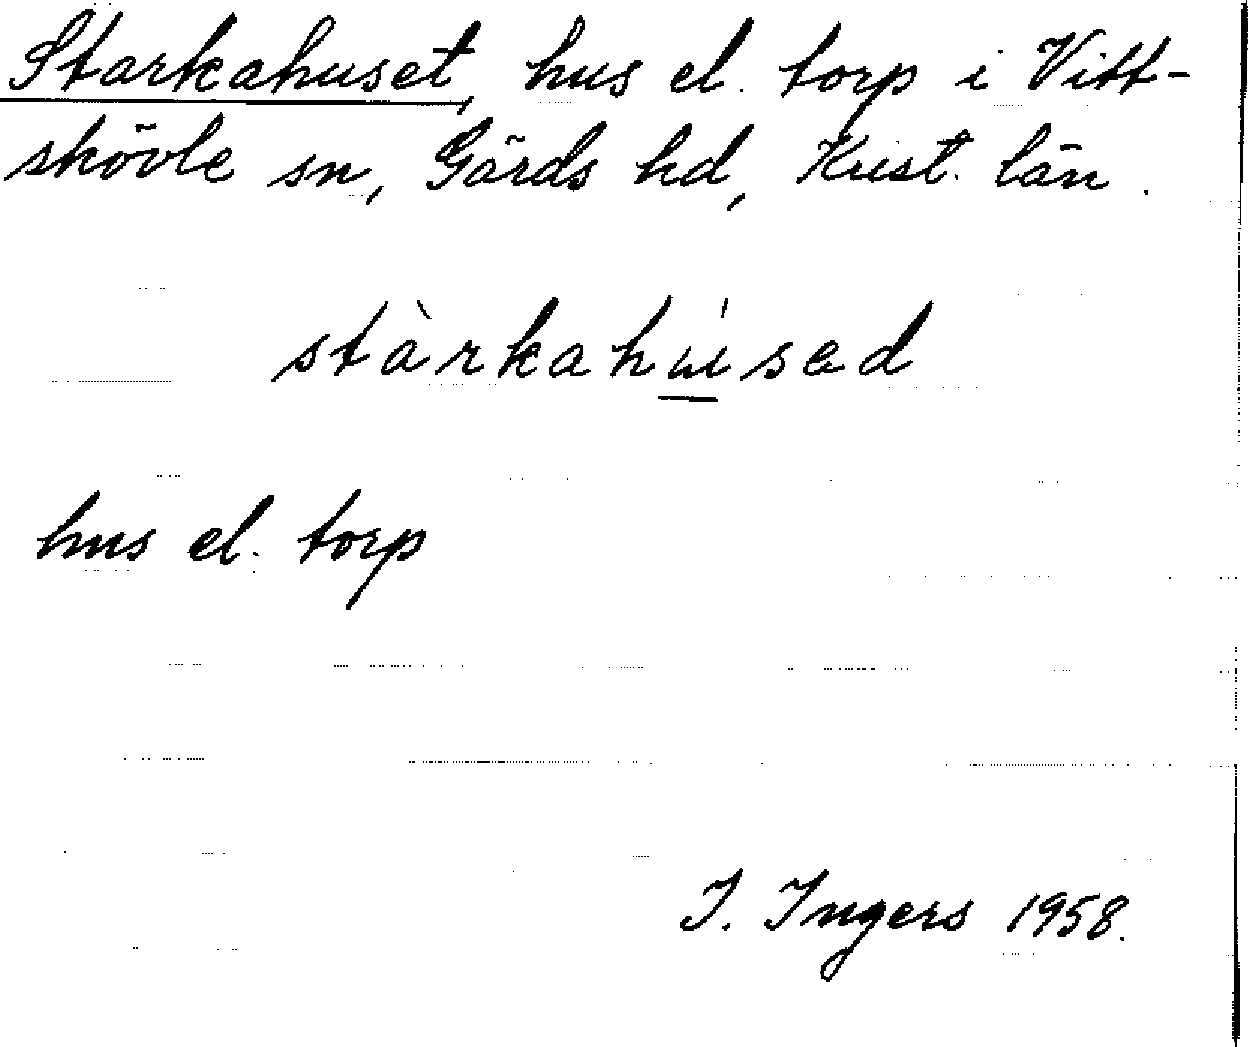 Starkahuset, hus el. torp i Vitt-
skövle sn, Gärds hd, Krist. län.
stàrkahúsad
hus el. torp
I. Ingers 1958.